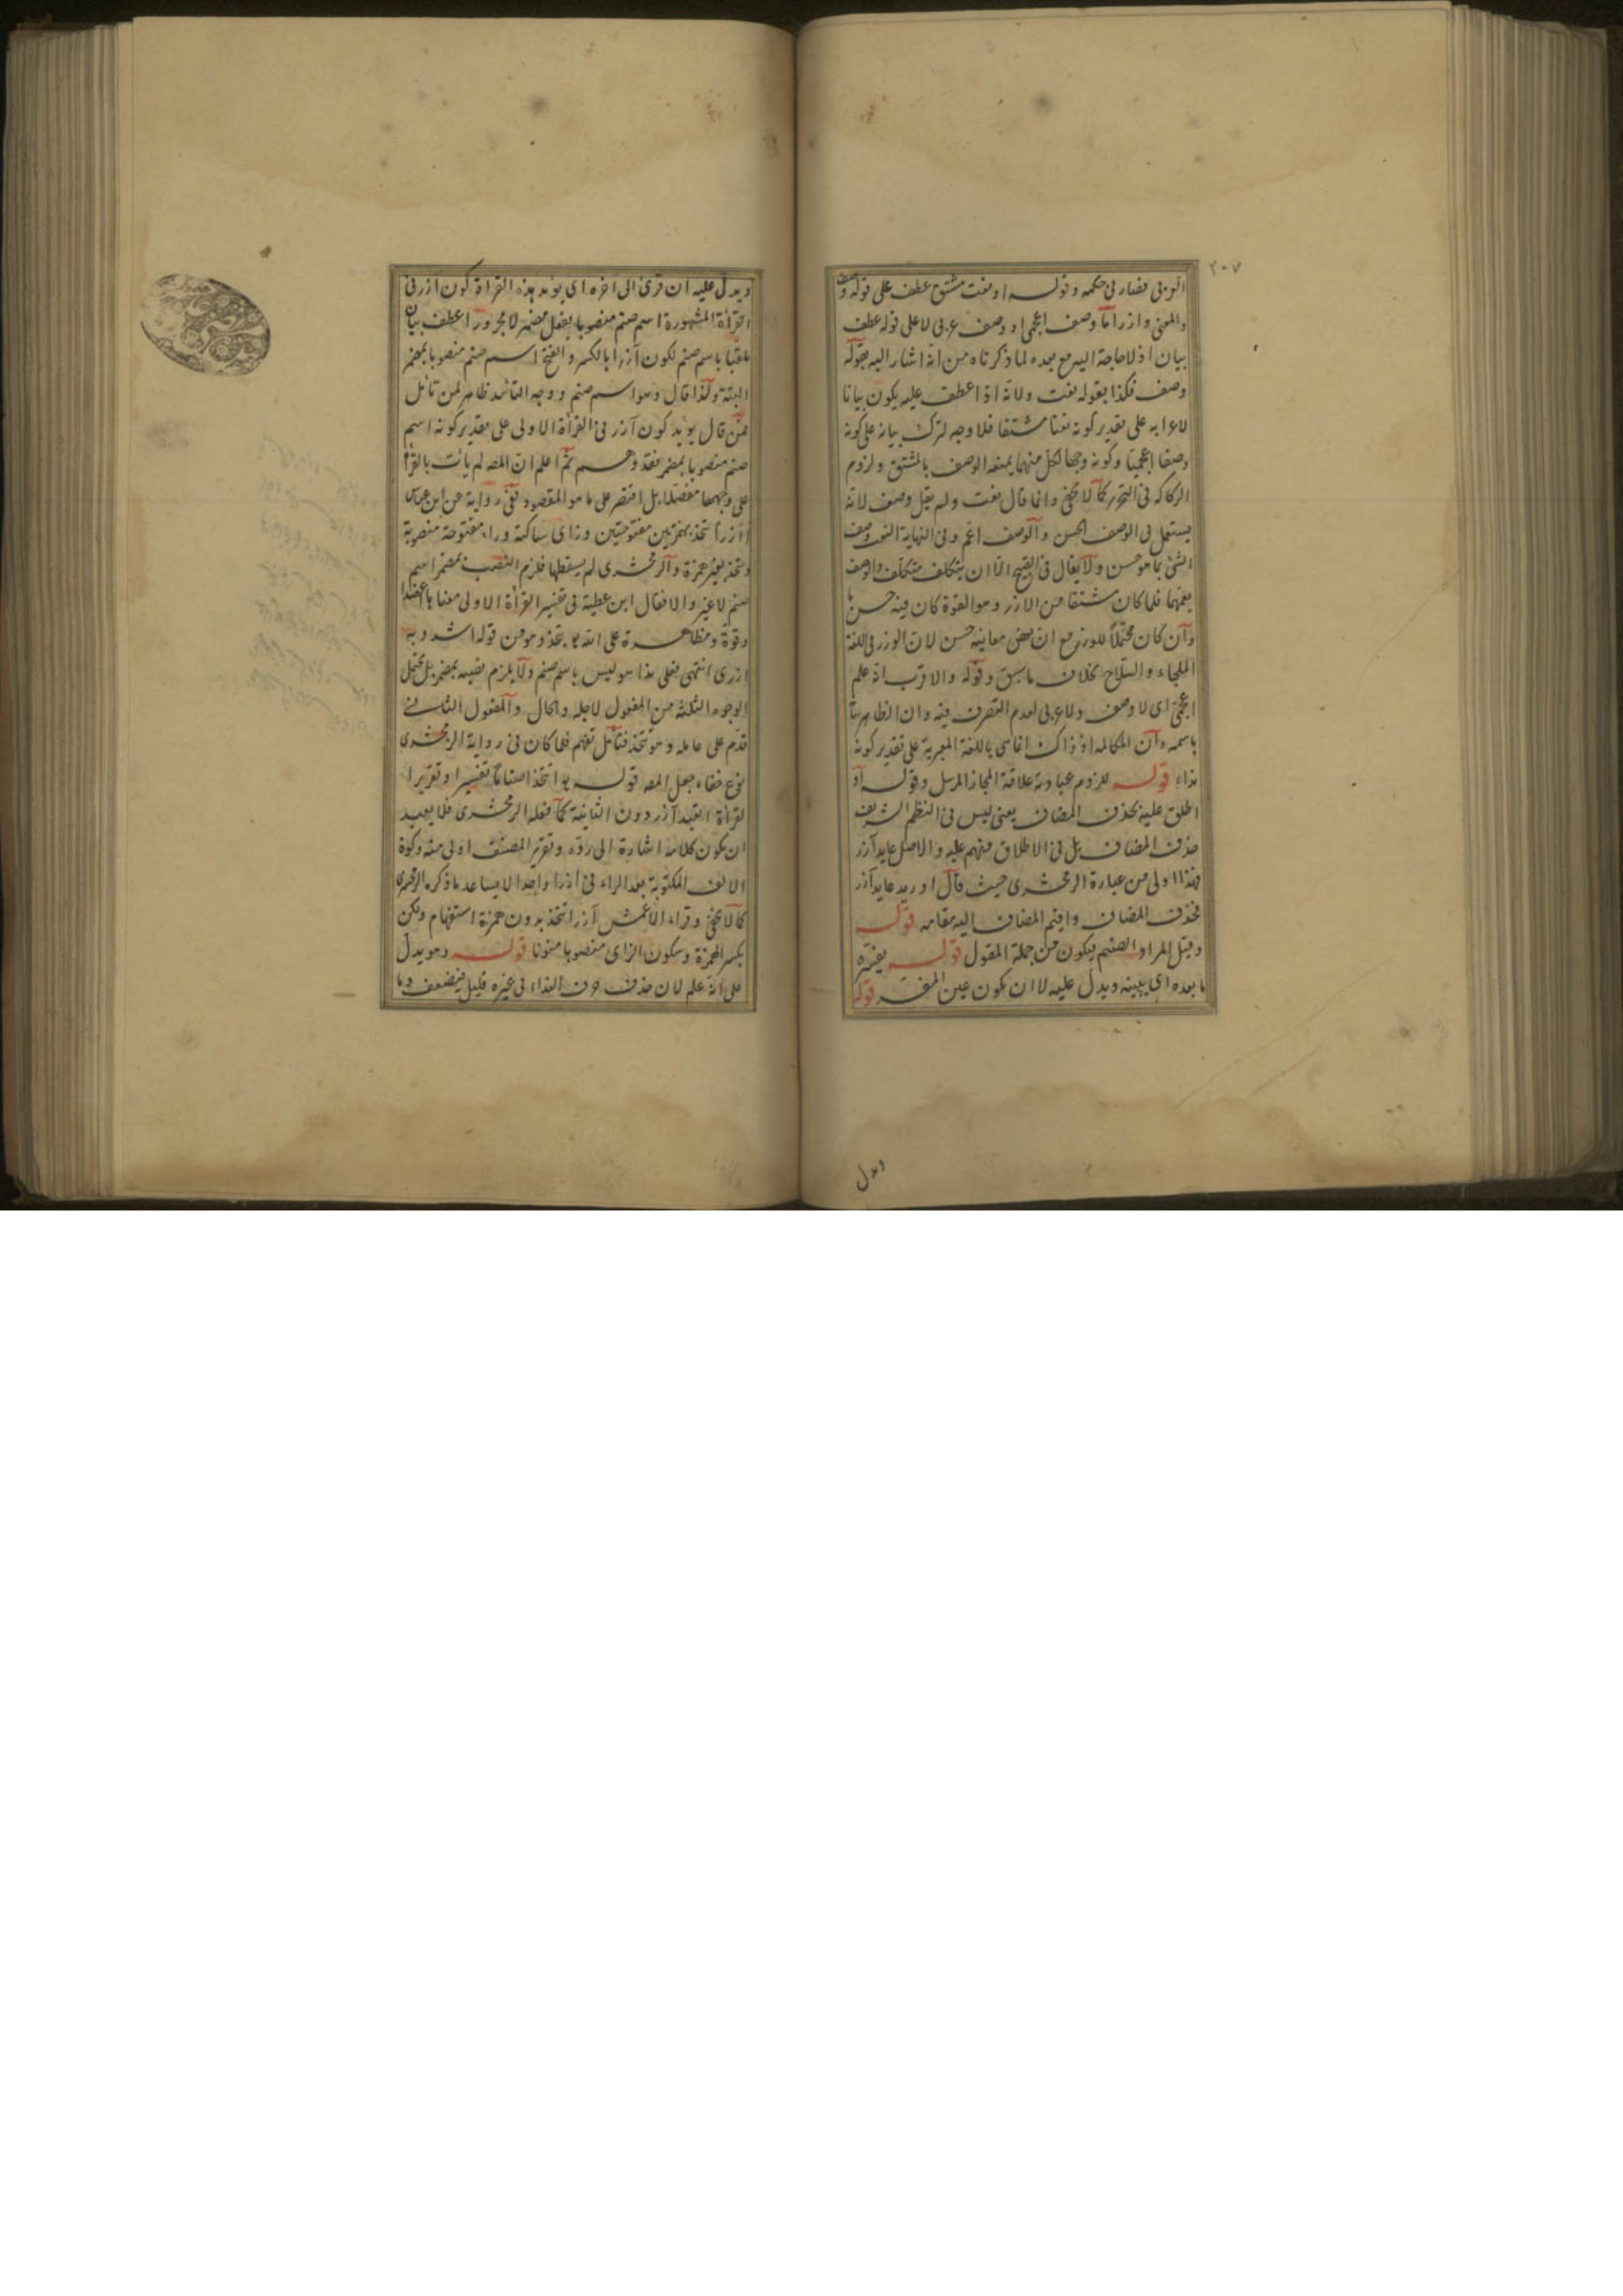 ٢٠٧
العربي فصار في حكمه وقوله او نعت مشتق عطف على قوله وصف
والمعنى وازرا اما وصف اعجمي او وصف عربي لا على قوله عطف
بيان اذ لا حاجة اليه مع بعده لما ذكرناه من انه اشار اليه بقوله
وصف فكذا بقوله نعت ولانه اذا عطف عليه يكون بيانا
لاعرابه على تقدير كونه نعتا مشتقا فلا وجه لترك بيانه على كونه
وصفا اعجميا وكونه وجها لكل منهما يمنعه الوصف بالمشتق ولزوم
الركاكه في التحرير كما لا يخفى وانما قال نعت ولم يقل وصف لانه
يستعمل في الوصف الحسن والوصف اعم وفي النهاية النعت وصف
الشئ بما هو حسن ولا يقال في القبيح الا ان يتكلف متكلف والوصف
يعمهما فلما كان مشتقا من الازر وهو القوة كان فيه حسن ما
وان كان محتملا للوزر مع ان بعض معانيه حسن لان الوزر في اللغة
الملجاء والسلاح بخلاف ما سبق وقوله والاقرب انه علم
اعجمي اى لا وصف ولا عربي لعدم التصرف فيه وان الظاهر
باسمه وان المكالمة اذ ذاك انما هي باللغة العبرية على تقدير كونه
نداء قوله للزوم عبادته علاقة المجاز المرسل وقوله او
اطلق عليه بحذف المضاف يعني ليس في النظم الشريف
حذف المضاف بل في الاطلاق منهم عليه والاصل عابد آزر
فهذا اولى من عبارة الزمخشرى حيث قال او اريد عابد آزر
فحذف المضاف واقيم المضاف اليه مقامه قوله
وقيل المراد الصنم فيكون من جملة المقول قوله يفسره
ما بعده اى يبينه ويدل عليه لا ان يكون عين المفسر قوله
ويدل
ويدل عليه ان قرئ الى آخره اى يؤيد بهذه القراءة كون آزر في
القرأة المشهورة اسم صنم منصوبا بفعل مضمر لا مجرورا عطف بيان
ملقبا باسم صنم لكون آزرا بالكسر والفتح اسم صنم منصوبا بمضمر
البتة ولذا قال وهو اسم صنم ووجه التأئيد ظاهر لمن تأمل
فمن قال يؤيد كون آزر في القرأة الاولى على تقدير كونه اسم
صنم منصوبا بمضمر فقد وهم ثم اعلم ان المصه لم يأت بالقرأ
على وجهها مفصلا بل اقتصر على ما هو المقصود ففي رواية عن ابن عباس
أازرا تتخذ بهمزتين مفتوحتين وزاى ساكنة وراء مفتوحة منصوبة
وتتخذ بغير همزة والزمخشرى لم يسقطها فلزم النصب بمضمر اسم
صنم لا غير والا فقال ابن عطية في تفسير القرأة الاولى معنا أاعتضادا
وقوة ومظاهرة على الله تتخذ وهو من قوله اشدد به
ازرى انتهى فعلى هذا هو ليس باسم صنم ولا يلزم نصبه بمضمر بل يحتمل
الوجوه الثلثة من المفعول لاجله والحال والمفعول الثاني
قدم على عامله وهو تتخذ فتأمل تفهم فلما كان في رواية الزمخشرى
نوع خفاء جعل المصه قوله اتتخذ اصناما تفسيرا وتقريرا
لقرأة آزر دون الثانية كما فعله الزمخشرى فلا يبعد
ان يكون كلامه اشارة الى رده وتقرير المصنف اولى منه وكون
الالف المكتوبة بعد الراء في ازرا واحدا لا يساعد ما ذكره الزمخشرى
كما لا يخفى وقراء الاعمش آزرا تتخذ بدون همزة استفهام ولكن
بكسر الهمزة وسكون الزاى منصوبا منونا قوله وهو يدل
على انه علم لان حذف حرف النداء في غيره قليل فيضعف وما